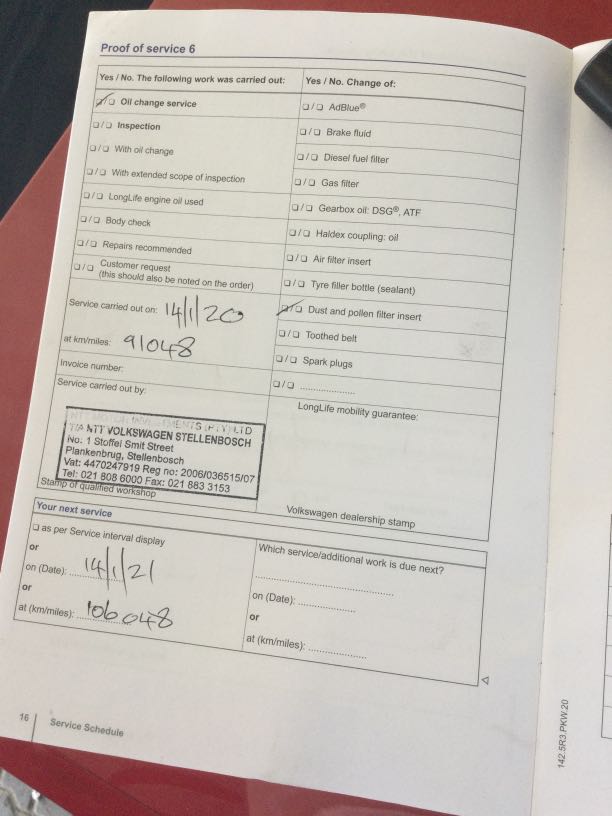 Proof of service 6
Yes / No. The following work was carried out:
❑/❑ Oil change service
❑/❑ Inspection
❑/❑ With oil change
❑/❑ With extended scope of inspection
❑/❑ LongLife engine oil used
❑/❑ Body check
❑/❑ Repairs recommended
❑/❑ Customer request
(this should also be noted on the order)
Service carried out on: 14/1/20
at km/miles: 91048
Invoice number:
Service carried out by:
NTT MOTOR INVESTMENTS (PTY) LTD
T/A NTT VOLKSWAGEN STELLENBOSCH
No: 1 Stoffel Smit Street
Plankenbrug, Stellenbosch
Vat: 4470247919 Reg no: 2006/036515/07
Tel: 021 808 6000 Fax: 021 883 3153
Stamp of qualified workshop
Yes / No. Change of:
❑/❑ AdBlue®
❑/❑ Brake fluid
❑/❑ Diesel fuel filter
❑/❑ Gas filter
❑/❑ Gearbox oil: DSG®, ATF
❑/❑ Haldex coupling: oil
❑/❑ Air filter insert
❑/❑ Tyre filler bottle (sealant)
❑/❑ Dust and pollen filter insert
❑/❑ Toothed belt
❑/❑ Spark plugs
❑/❑ ....................
LongLife mobility guarantee:
Volkswagen dealership stamp
Your next service
❑ as per Service interval display
or
on (Date): 14/1/21
or
at (km/miles): 106 048
Which service/additional work is due next?
..................................................
on (Date): ....................
or
at (km/miles): ....................
16
Service Schedule
142.5R3.PKW.20